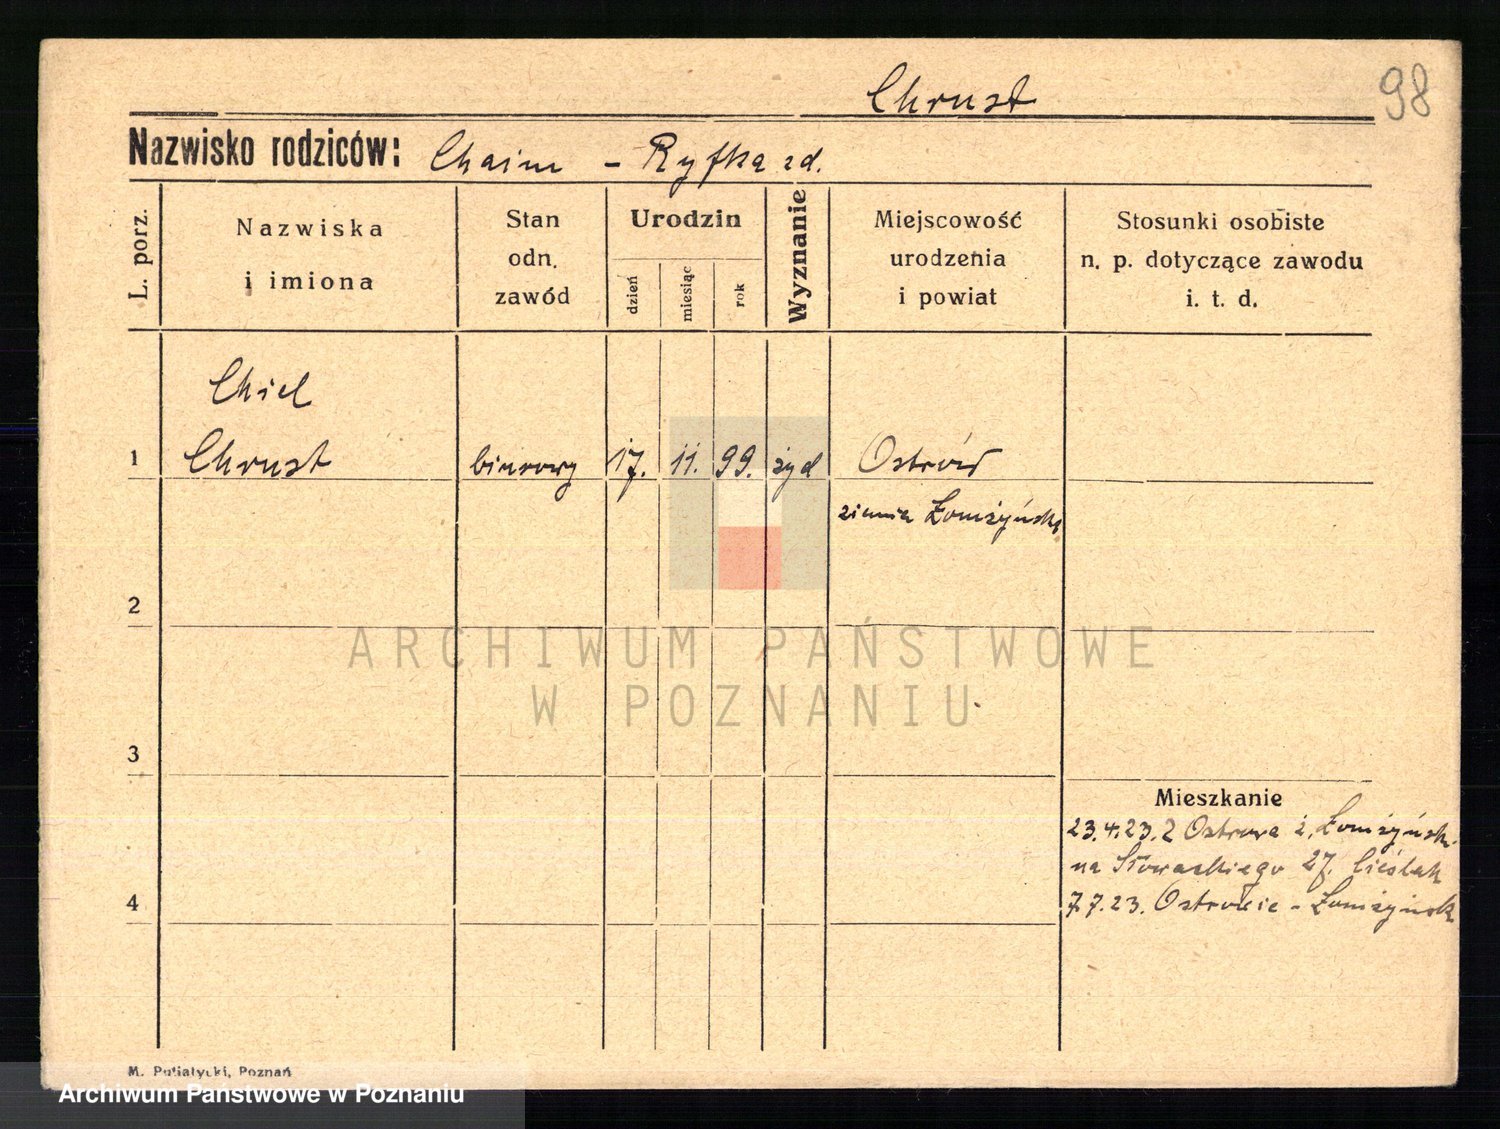 Chrust
98
Nazwisko rodziców: Chaim - Ryfka zd.
L. porz.
Nazwiska
i imiona
Stan
odn.
zawód
Urodzin
dzień
miesiąc
rok
Wyznanie
Miejscowość
urodzenia
i powiat
Stosunki osobiste
n. p. dotyczące zawodu
i. t. d.
Chiel
1 Chrust biurowy 17. 11. 99. żyd Ostrów
ziemia Łomżyńska
2
3
4
Mieszkanie
23.4.23. z Ostrowa z. Łomżyńsk.
na Słowackiego 27. Cieślak
7.7.23. Ostrowie - Łomżyńsk
ARCHIWUM PAŃSTWOWE
W POZNANIU
M. Putiatycki, Poznań
Archiwum Państwowe w Poznaniu